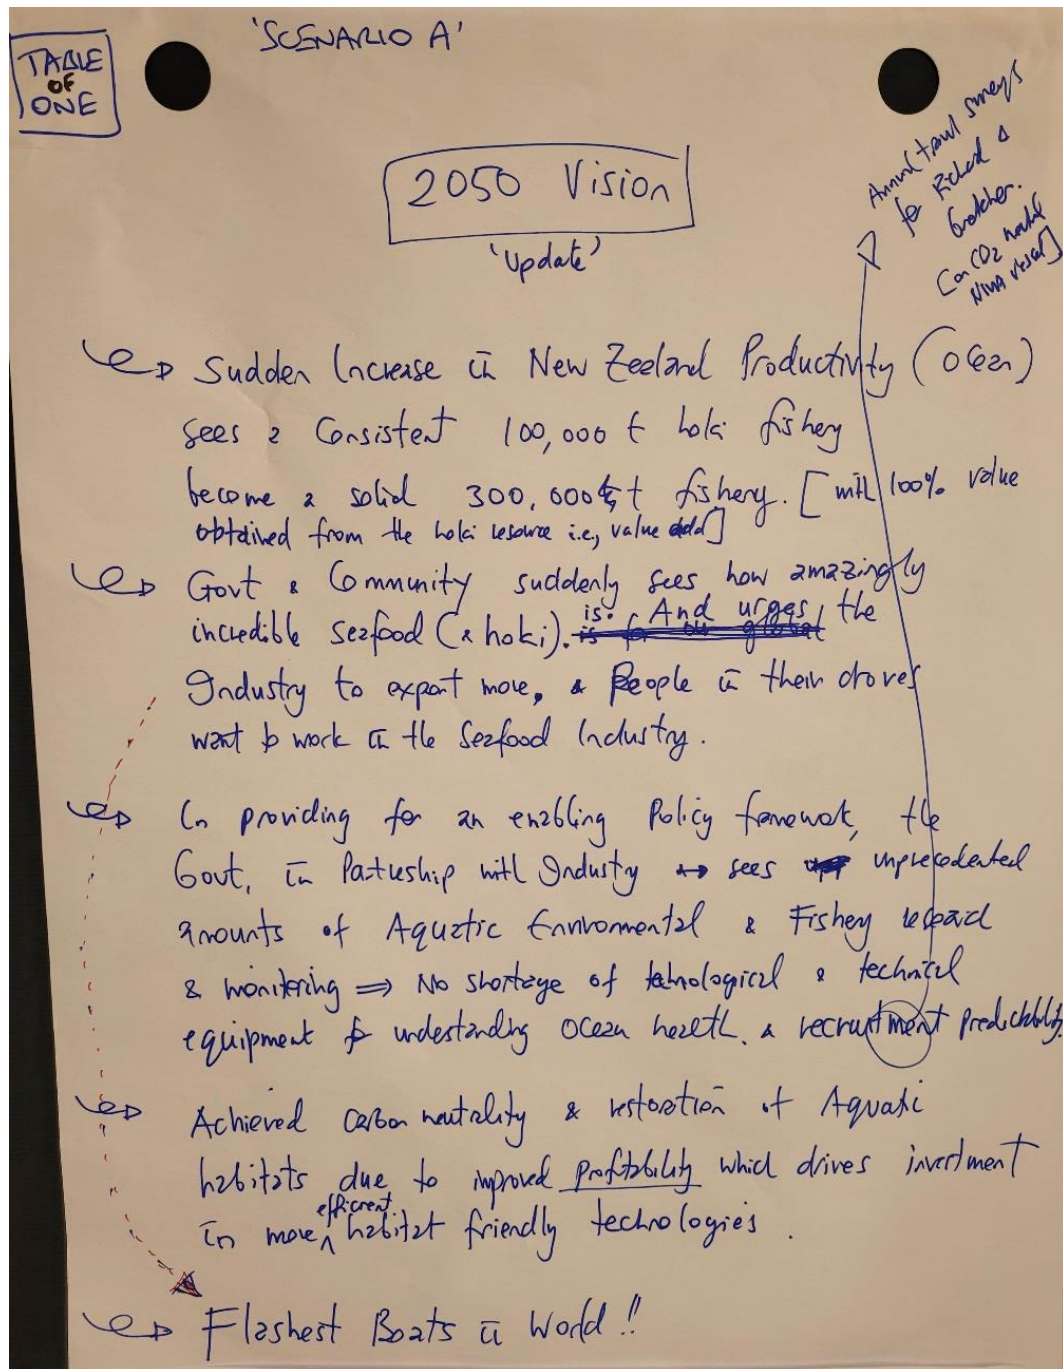 TABLE
OF
ONE
'SCENARIO A'
2050 Vision
'Update'
Annual trawl surveys
for Richard &
[on CO2 neutral
NIWA vessel]
Sudden Increase in New Zealand Productivity (Ocean)
sees a Consistent 100,000 t hoki fishery
become a solid 300,000 t fishery. [with 100% value
obtained from the hoki resource i.e., value add]
Govt & Community suddenly sees how amazingly
incredible seafood (& hoki). is. And urges the
Industry to export more, & People in their droves
want to work in the Seafood Industry.
In providing for an enabling Policy framework, the
Govt, in Partnership with Industry sees unprecedented
amounts of Aquatic Environmental & Fishery research
& monitoring ⇒ No shortage of technological & technical
equipment for understanding Ocean health. & recruitment predictability.
Achieved carbon neutrality & restoration of Aquatic
habitats due to improved profitability which drives investment
in more efficient habitat friendly technologies.
Flashest Boats in World!!